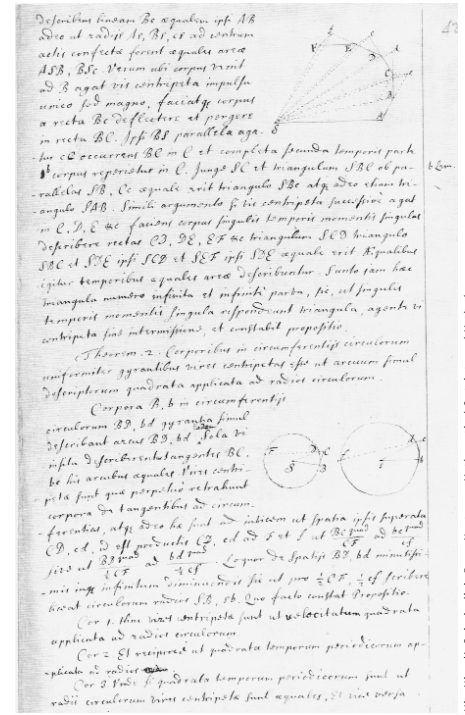 describens lineam Bc æqualem ipsi AB
adeo ut radijs AS, BS, cS ad centrum
actis confectæ forent æquales areæ
ASB, BSc. Verum ubi corpus venit
ad B agat vis centripeta impulsu
unico sed magno, faciatqꝫ corpus
a recta Bc deflectere et pergere
in recta BC. Ipsi BS parallela aga-
tur cC occurrens BC in C et completa secunda temporis parte
corpus reperietur in C. Junge SC et triangulum SBC ob pa-
rallelas SB, Cc æquale erit triangulo SBc atqꝫ adeo etiam tri-
angulo SAB. Simili argumento si vis centripeta successive agat
in C, D, E &c faciens corpus singulis temporis momentis singulas
describere rectas CD, DE, EF &c triangulum SCD triangulo
SBC et SDE ipsi SCD et SEF ipsi SDE æquale erit. Æqualibus
igitur temporibus æquales areæ describuntur. Sunto jam hæc
triangula numero infinita et infinite parva, sic, ut singulis
temporis momentis singula respondeant triangula, agente vi
centripeta sine intermissione, et constabit propositio.
Theorem. 2. Corporibus in circumferentijs circulorum
uniformiter gyrantibus vires centripetas esse ut arcuum simul
descriptorum quadrata applicata ad radios circulorum.
Corpora B, b in circumferentijs
circulorum BD, bd gyrantia simul
describant arcus BD, bd. Sola vi
insita describerent tangentes BC,
bc his arcubus æquales. Vires centri-
petæ sunt quæ perpetuo retrahunt
corpora de tangentibus ad circum-
ferentias, atqꝫ adeo hæ sunt ad invicem ut spatia ipsis superata
CD, cd, id est productis CD, cd ad F et f ut BC quad / CF ad bc quad / cf
sive ut BD quad / ½ CF ad bd quad / ½ cf. Loquor de spatijs BD, bd minutissi-
mis inqꝫ infinitum diminuendis sic ut pro ½ CF, ½ cf scribere
liceat circulorum radios SB, sb. Quo facto constat Propositio.
Cor 1. Hinc vires centripetæ sunt ut velocitatum quadrata
applicata ad radios circulorum.
Cor 2 Et reciproce ut quadrata temporum periodicorum ap-
plicata ad radios
Cor 3. Unde si quadrata temporum periodicorum sunt ut
radij circulorum vires centripetæ sunt æquales, Et vice versa